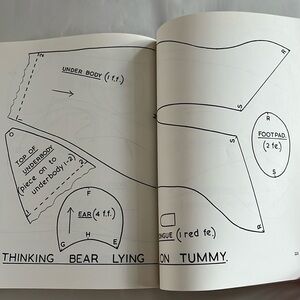 UNDER BODY (1 f.f.)
TOP OF
UNDERBODY
(piece on to
underbody 1-2)
EAR (4 f.f.)
F
G
H
E
R
S
S
R
FOOTPAD.
(2 fe.)
R
S
(1 red fe.)
THINKING BEAR LYING ON TUMMY.